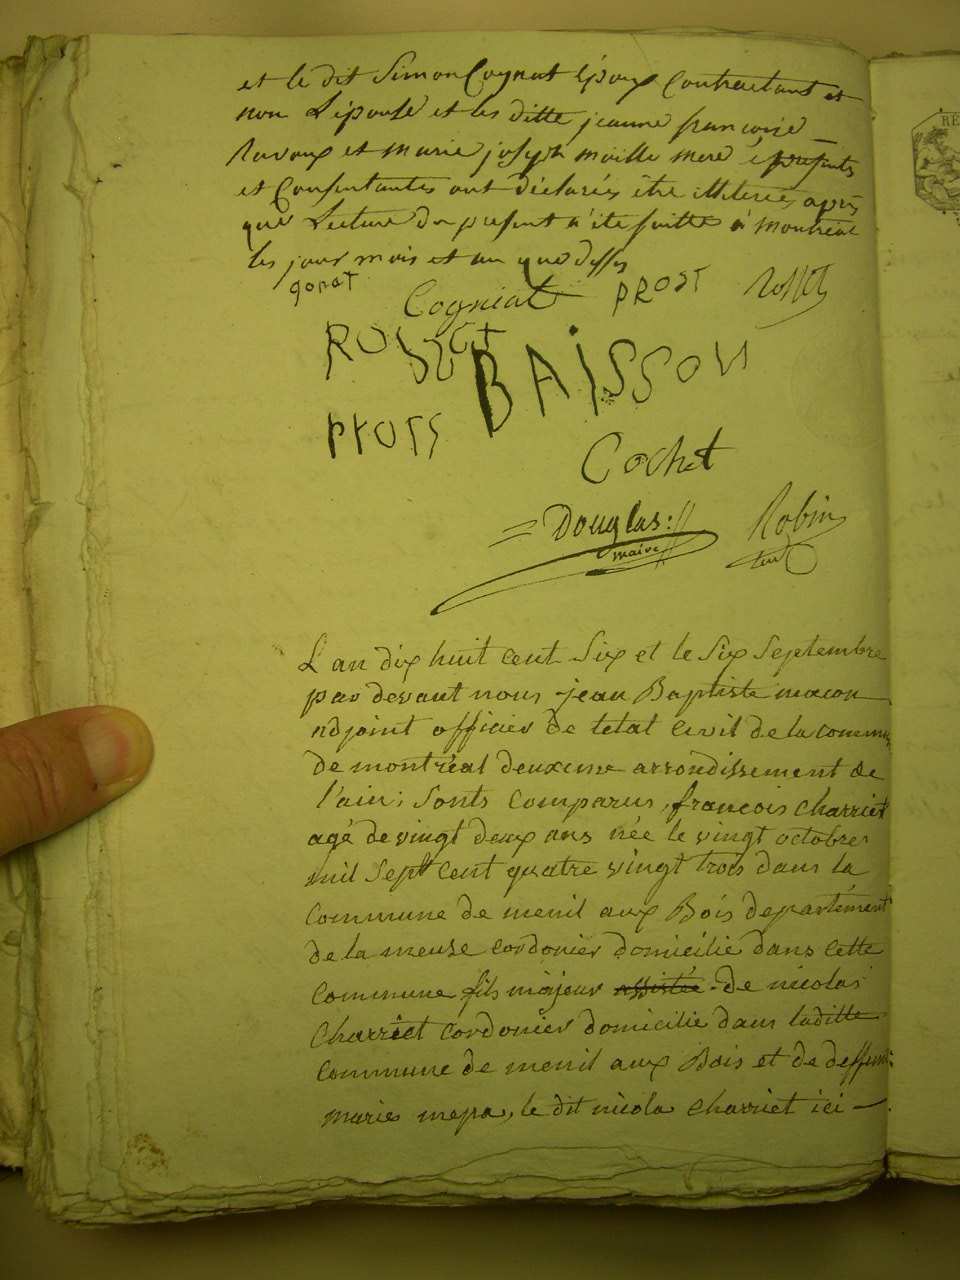 et le dit Simon Cognat époux Contractant et
non L'épouse et les ditte jeanne françoise
Ravoux et marie joseph maille mere presents
et Consentantes ont déclarés être illiteriés après
que Lecture du present a été faitte à montréal
les jour mois et an que dessus
gonat Cogniat PROST Rosset
ROUSSET
BAISSON
PROST
Cochet
Douglas Robin
maire
L'an dix huit cent Six et le Six Septembre
par devant nous jean Baptiste macon
adjoint officier de tetat Civil de la commune
de montréal deuxeme arrondissement de
l'ain; Sonts Comparus, françois Charriet
agé de vingt deux ans née le vingt octobre
mil Sept Cent quatre vingt trois dans la
Commune de menil aux Bois departement
de la meuse cordonier domicilié dans cette
Commune fils majeur assistée de nicolas
Charriet cordonier domicilié dans laditte
Commune de menil aux Bois et de deffunte
marie mepa, le dit nicola Charriet ici
RE